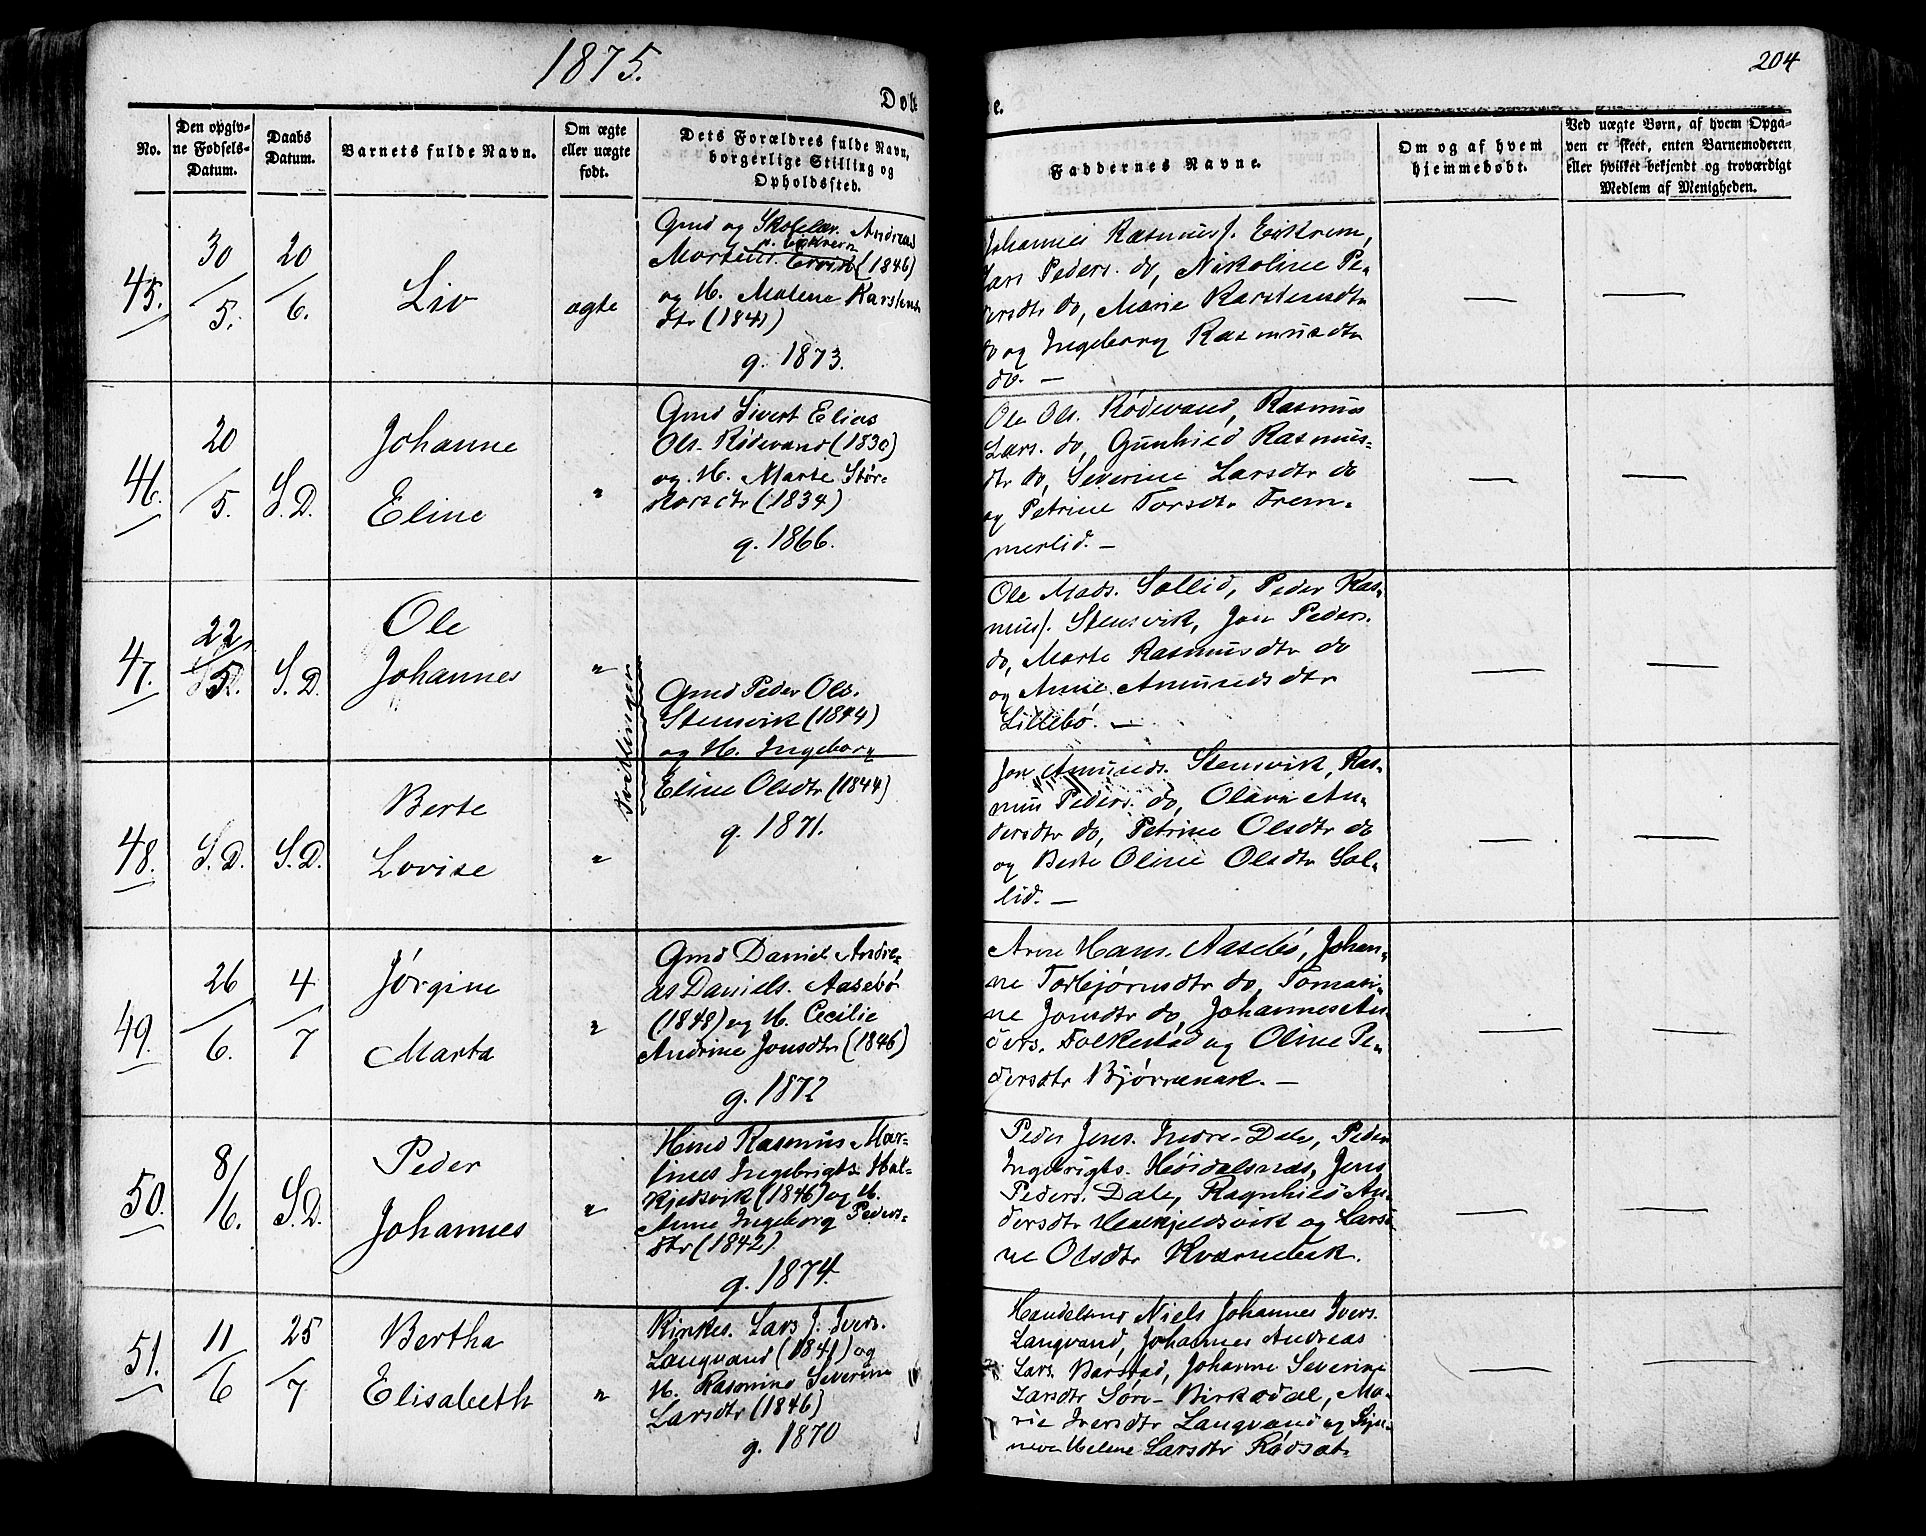 1875.
204
Døbte.
No.
Den opgiv-
ne Fødsels-
Datum.
Daabs
Datum.
Barnets fulde Navn.
Om ægte
eller uægte
født.
Dets Forældres fulde Navn,
borgerlige Stilling og
Opholdssted.
Faddernes Navne.
Om og af hvem
hjemmedøbt.
Ved uægte Børn, af hvem Opga-
ven er skeet, enten Barnemoderen
eller hvilket bekjendt og troværdigt
Medlem af Menigheden.
45.
30/5.
20/6.
Liv
ægte
Gmd og Skolelær. Andreas
Mortens. Eikrem (1846)
og H. Malene Karstens
dtr (1841)
g. 1873.
Johannes Rasmuss. Eikrem,
Lars Peders. do, Nikoline Pe-
dersdtr do, Marie Karstensdtr
do og Ingeborg Rasmusdtr
do. —
46.
20/5.
S.D.
Johanne
Eline
"
Gmd Sivert Elias
Ols. Rødevand (1830)
og H. Marte Stør-
korsdtr (1834)
g. 1866.
Ole Ols. Rødevand, Rasmus
Lars. do, Gunhild Rasmus-
dtr do, Severine Larsdtr do
og Petrine Torsdtr Frem-
merlid. —
47.
22/5.
S.D.
Ole
Johannes
"
Tvillinger
Gmd Peder Ols.
Stensvik (1844)
og H. Ingeborg
Eline Olsdtr (1844)
g. 1871.
Ole Mads. Sollid, Peder Ras-
muss. Stensvik, Jon Peders.
do, Marte Rasmusdtr do
og Anne Amundsdtr
Lillebø. —
48.
S.D.
S.D.
Berte
Lovise
"
Jon Amunds. Stensvik, Ras-
mus Peders. do, Olava An-
dersdtr do, Petrine Olsdtr do
og Berte Oline Olsdtr Sol-
lid. —
49.
26/6.
4/7
Jørgine
Marta
"
Gmd Daniel Andre-
as Daniels. Aasebø
(1848) og H. Cecilie
Andrine Jonsdtr (1846)
g. 1872
Arne Hans. Aasebø, Johan-
ne Torbjørnsdtr do, Tomasi-
ne Jonsdtr do, Johannes An-
ders. Folkestad og Oline Pe-
dersdtr Bjørnenak. —
50.
8/6.
S.D.
Peder
Johannes
"
Hmd Rasmus Mar-
tines Ingebrigts. Hal-
kjelsvik (1846) og H.
Anne Ingeborg Peders-
dtr (1842)
g. 1874.
Peder Jens. Indre-Dale, Peder
Ingebrigts. Høidalsnæs, Jens
Peders. Dale, Ragnhild An-
dersdtr Halkjeldsvik og Larsi-
ne Olsdtr Kværnebak.
51.
11/6
25/7
Bertha
Elisabeth
"
Kirkes. Lars J. Ivers.
Langvand (1841) og
H. Rasmine Severine
Larsdtr (1846)
g. 1870
Handelsmd Niels Johannes Ivers.
Langvand, Johannes Andreas
Lars. Barstad, Johanne Severine
Larsdtr Søre-Birkedal, Ma-
rie Iversdtr Langvand og Syn-
neve Helene Larsdtr Rødsæt